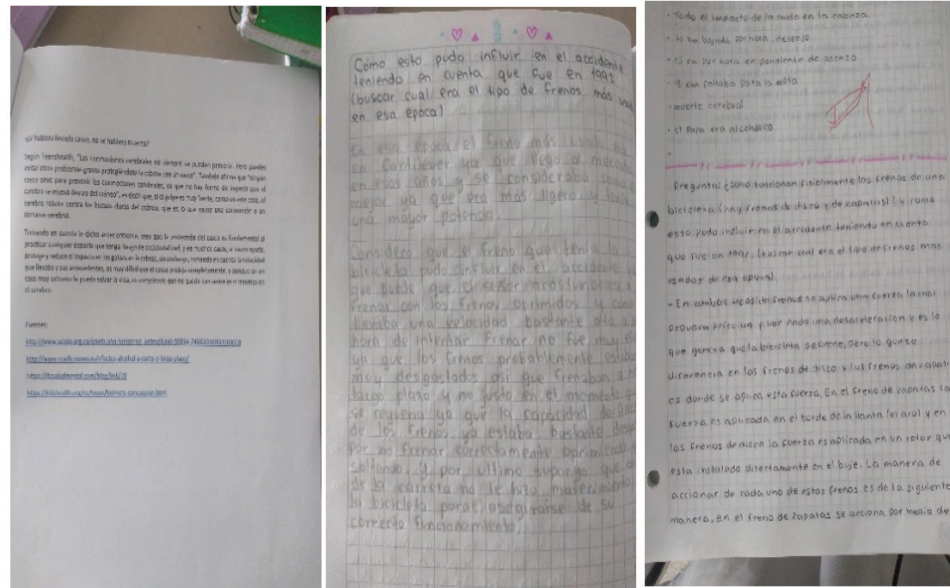 ¿Si hubiera llevado casco, no se hubiera muerto?
Según Teenshealth, "Las conmociones cerebrales no siempre se pueden prevenir. Pero puedes
evitar otros problemas graves protegiéndote la cabeza con un casco". También afirma que "Ningún
casco sirve para prevenir las conmociones cerebrales, ya que no hay forma de impedir que el
cerebro se mueva dentro del cráneo", es decir que, si el golpe es muy fuerte, como en este caso, el
cerebro rebota contra los huesos duros del cráneo, que es lo que causa una conmoción o un
derrame cerebral.
Teniendo en cuenta lo dicho anteriormente, creo que la prevención del casco es fundamental al
practicar cualquier deporte que tenga riesgo de accidentalidad y en muchos casos,
protege y reduce el impacto en los golpes en la cabeza, sin embargo, tomando en cuenta la velocidad
que llevaba y sus antecedentes, es muy difícil que el casco proteja completamente, y aunque en un
caso muy extremo le puede salvar la vida, es complicado que no quede con
el cerebro.
Fuentes:
Como esto pudo influir en el accidente
teniendo en cuenta que fue en 1997
(buscar cual era el tipo de frenos más
en esa epoca)
En esa época el freno más usado
Cantilever ya que llego al mercado
en esos años y se consideraba como
mejor ya que era más ligero y
una mayor potencia.
Considero que el freno que tenía
bicicleta pudo influir en el accidente
que puede que el señor acostumbrara
frenar con los frenos oprimidos y como
llevaba una velocidad bastante alta a
hora de intentar frenar no fue muy
ya que los frenos probablemente estaban
muy desgastados asi que frenaban a
largo plazo y no justo en el momento
se requeria ya que la capacidad de
de los frenos ya estaba bastante
por no frenar correctamente oprimiendo
soltando, y por ultimo supongo que
de la carrera no le hizo mantenimiento
la bicicleta para asegurarse de su
correcto funcionamiento.
- Todo el impacto de la moto en la cabeza
km bajada por hora, desenso
km por hora en pendiente de asenso
km faltaba para la meta
- muerte cerebral
- el papa era alcohólico
Pregunta: ¿como funcionan fisicamente los frenos de una
bicicleta (hay frenos de disco y de zapatas)? y como
esto pudo influir en el accidente teniendo en cuenta
que fue en 1997. (buscar cual era el tipo de frenos mas
usados de esa epoca).
- En ambos tipos de frenos se aplica una fuerza la cual
provoca friccion y por ende una desaceleracion y es lo
que genera que la bicicleta se frene, pero lo que
diferencia en los frenos de disco y los frenos de zapatas
es donde se aplica esta fuerza, en el freno de zapatas la
fuerza es aplicada en el borde de la llanta (el aro) y en
los frenos de disco la fuerza es aplicada en un rotor que
esta instalado directamente en el buje. La manera de
accionar de cada uno de estos frenos es de la siguiente
manera, en el freno de zapatas se acciona por medio de